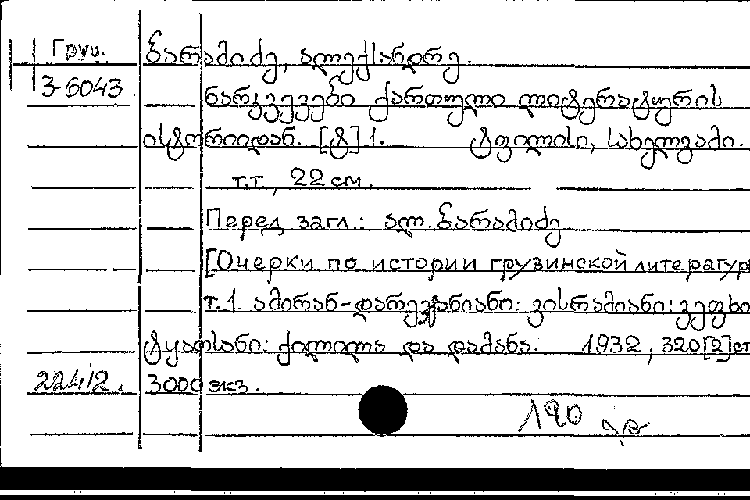 Груз.
3-6043
ბარამიძე, ალექსანდრე.
ნარკვევები ქართული ლიტერატურის
ისტორიიდან. [ტ] 1. ტფილისი, სახელგამი.
т.т., 22 см.
Перед загл.: ალ. ბარამიძე
[Очерки по истории грузинской литератур
т.1. ამირან-დარეჯანიანი: ვისრამიანი: ვეფხი
ტყაოსანი: ქილილა და დამანა. 1932, 320[2]ст
224/2. 3000 экз.
190